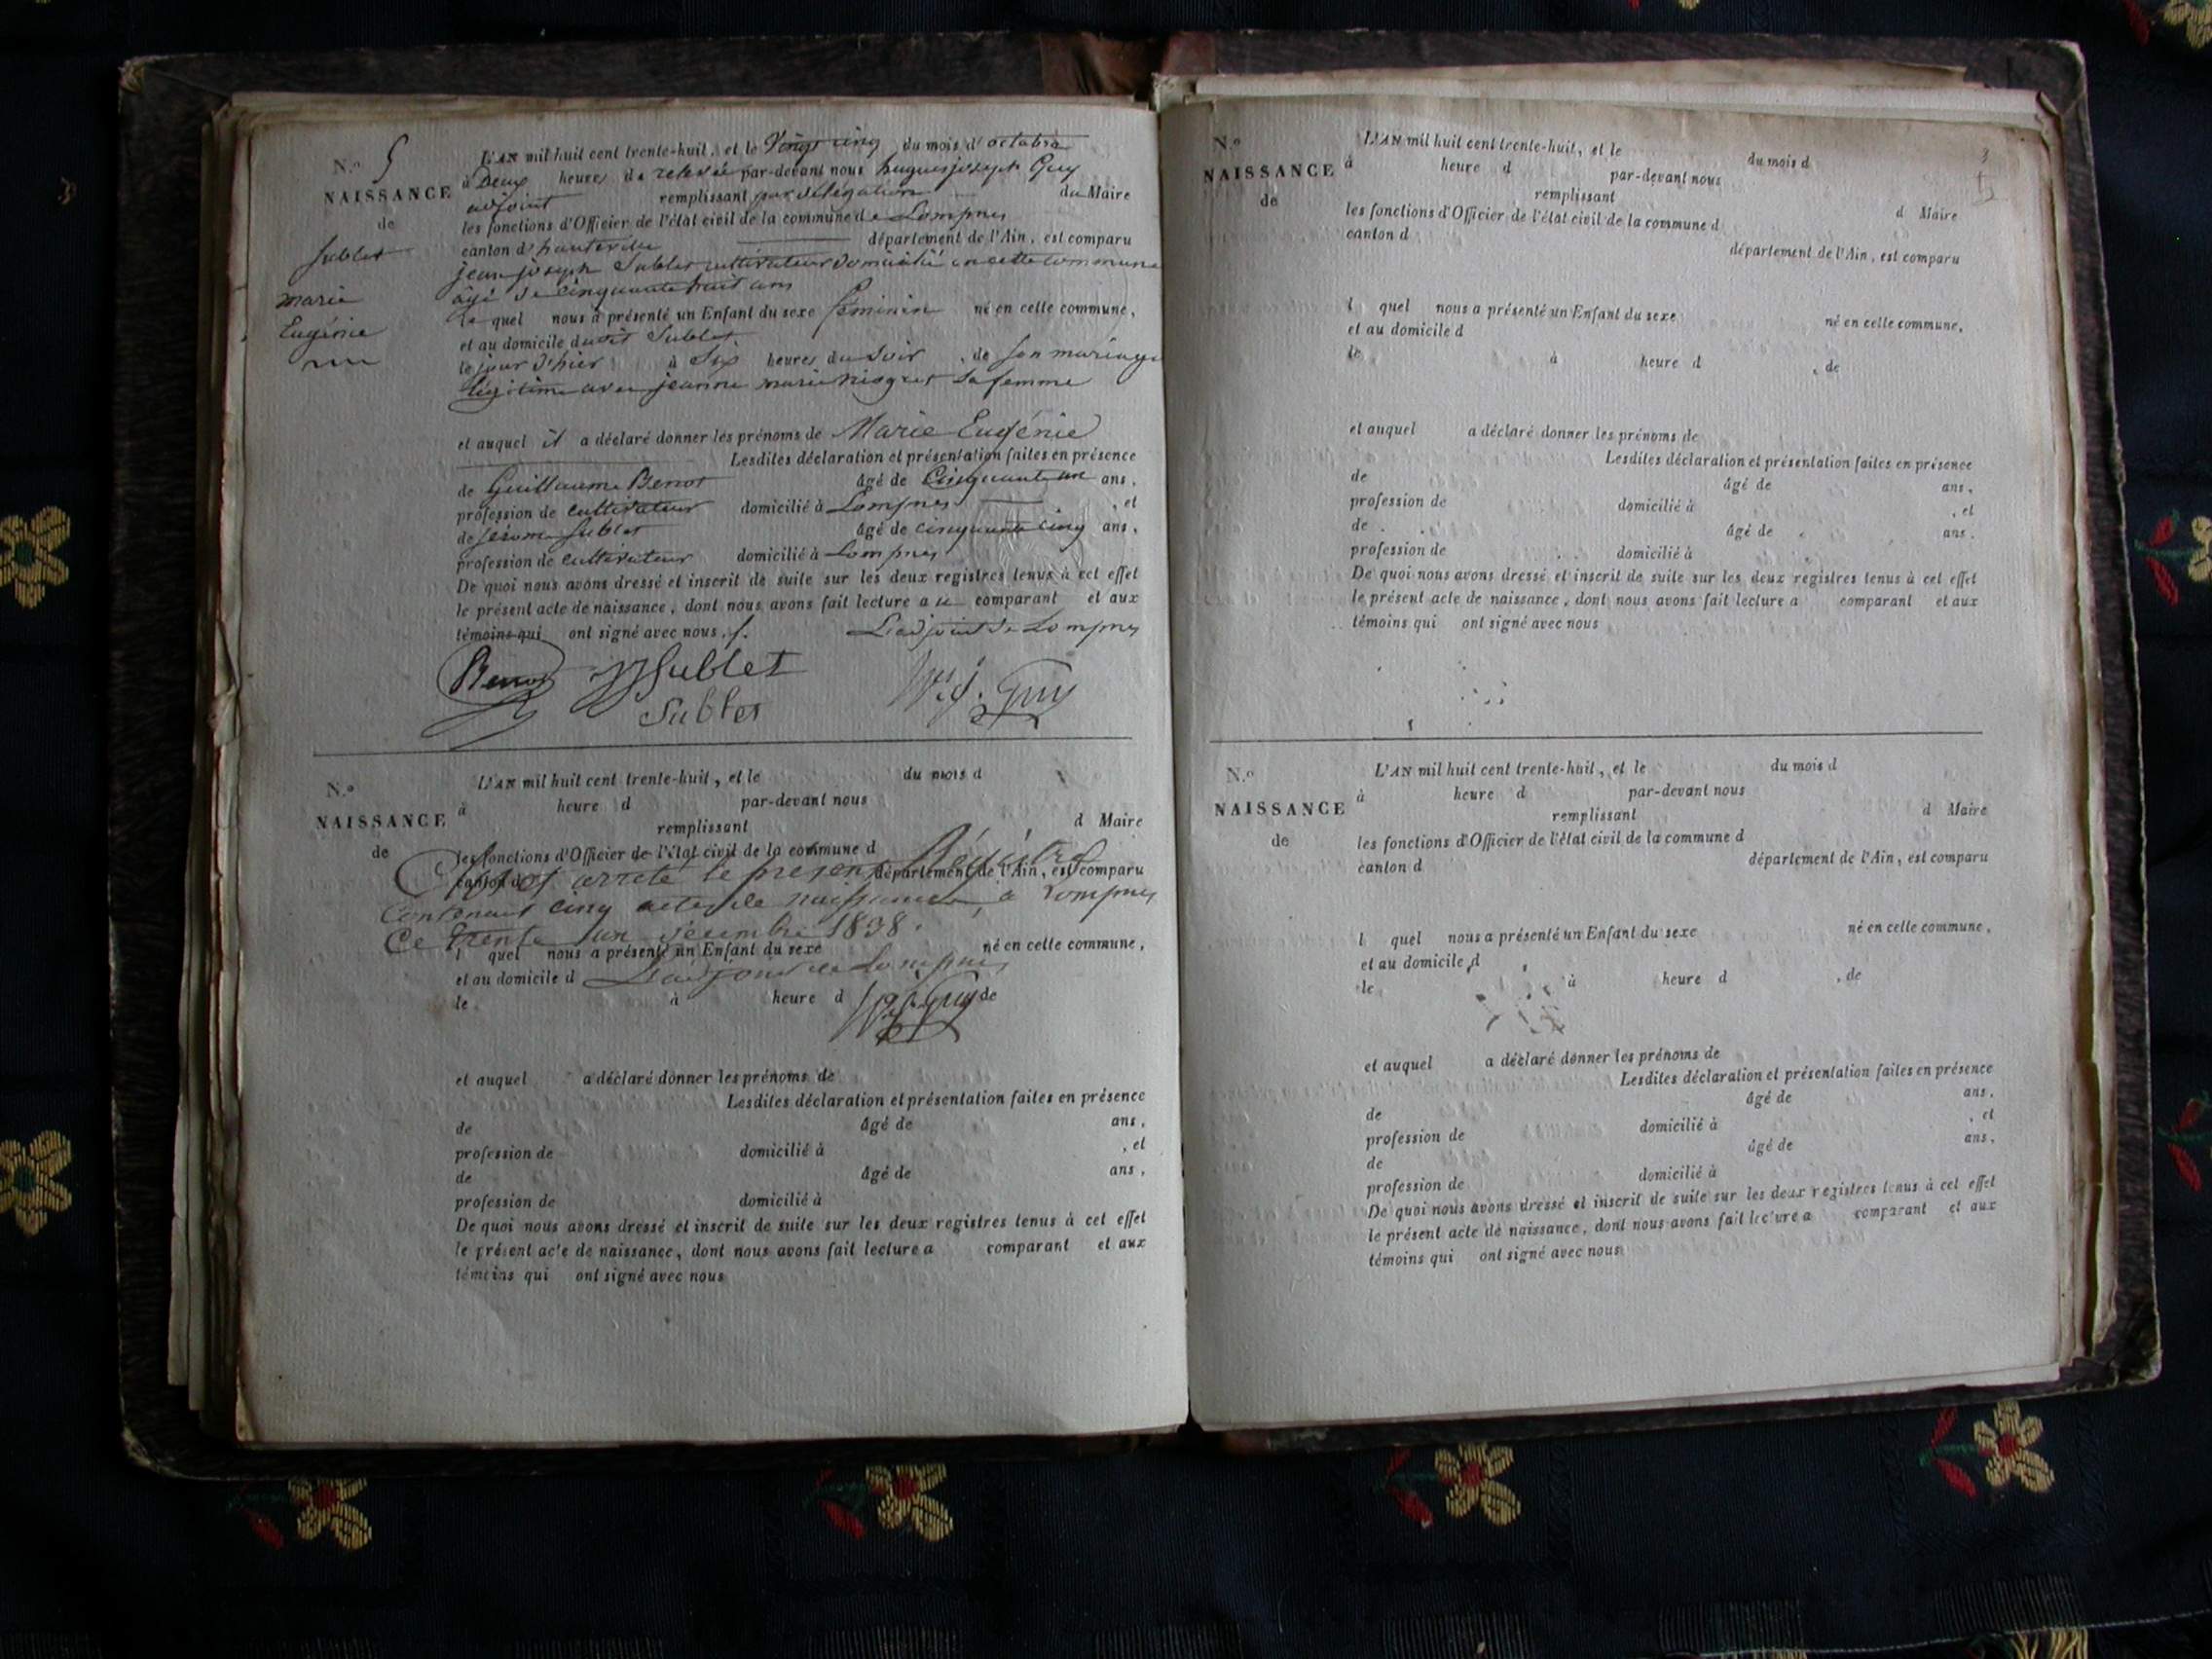 N.º 5
L'AN mil huit cent trente-huit, et le Vingt cinq du mois d'octobre
NAISSANCE
à Deux heures de relevée par-devant nous hugues joseph Guy
adjoint remplissant par délégation du Maire
de
les fonctions d'Officier de l'état civil de la commune de Lompnes
Sublet
canton d'hauteville département de l'Ain, est comparu
jean joseph Sublet cultivateur domicilié en cette commune
marie
âgé de cinquante huit ans
Eugénie
le quel nous a présenté un Enfant du sexe féminin né en cette commune,
et au domicile dudit Sublet
le jour d'hier à Six heures du Soir, de son mariage
légitime avec jeanne marie sa femme
et auquel il a déclaré donner les prénoms de Marie Eugénie
Lesdites déclaration et présentation faites en présence
de Guillaume Benot âgé de Cinquante un ans,
profession de cultivateur domicilié à Lompnes, et
de jérome Sublet âgé de cinquante cinq ans,
profession de cultivateur domicilié à Lompnes
De quoi nous avons dressé et inscrit de suite sur les deux registres tenus à cet effet
le présent acte de naissance, dont nous avons fait lecture au comparant et aux
témoins qui ont signé avec nous.
L'adjoint de Lompnes
Benot JJ Sublet
Sublet
H.J. Guy
N.º
L'AN mil huit cent trente-huit, et le du mois d
NAISSANCE
à heure d par-devant nous
remplissant d Maire
de
les fonctions d'Officier de l'état civil de la commune d
canton d département de l'Ain, est comparu
Clos et arrêté le présent Régistre
Contenant cinq actes de naissance, à Lompnes
Ce trente un décembre 1838.
l quel nous a présenté un Enfant du sexe né en cette commune,
et au domicile d
L'adjoint de Lompnes
le à heure d , de
H.J. Guy
et auquel a déclaré donner les prénoms de
Lesdites déclaration et présentation faites en présence
de âgé de ans,
profession de domicilié à , et
de âgé de ans,
profession de domicilié à
De quoi nous avons dressé et inscrit de suite sur les deux registres tenus à cet effet
le présent acte de naissance, dont nous avons fait lecture a comparant et aux
témoins qui ont signé avec nous
N.º
L'AN mil huit cent trente-huit, et le du mois d
NAISSANCE
à heure d par-devant nous
remplissant d Maire
de
les fonctions d'Officier de l'état civil de la commune d
canton d département de l'Ain, est comparu
l quel nous a présenté un Enfant du sexe né en cette commune,
et au domicile d
le à heure d , de
et auquel a déclaré donner les prénoms de
Lesdites déclaration et présentation faites en présence
de âgé de ans,
profession de domicilié à , et
de âgé de ans.
profession de domicilié à
De quoi nous avons dressé et inscrit de suite sur les deux registres tenus à cet effet
le présent acte de naissance, dont nous avons fait lecture a comparant et aux
témoins qui ont signé avec nous
N.º
L'AN mil huit cent trente-huit, et le du mois d
NAISSANCE
à heure d par-devant nous
remplissant d Maire
de
les fonctions d'Officier de l'état civil de la commune d
canton d département de l'Ain, est comparu
l quel nous a présenté un Enfant du sexe né en cette commune,
et au domicile d
le à heure d , de
et auquel a déclaré donner les prénoms de
Lesdites déclaration et présentation faites en présence
de âgé de ans,
profession de domicilié à , et
de âgé de ans,
profession de domicilié à
De quoi nous avons dressé et inscrit de suite sur les deux registres tenus à cet effet
le présent acte de naissance, dont nous avons fait lecture a comparant et aux
témoins qui ont signé avec nous